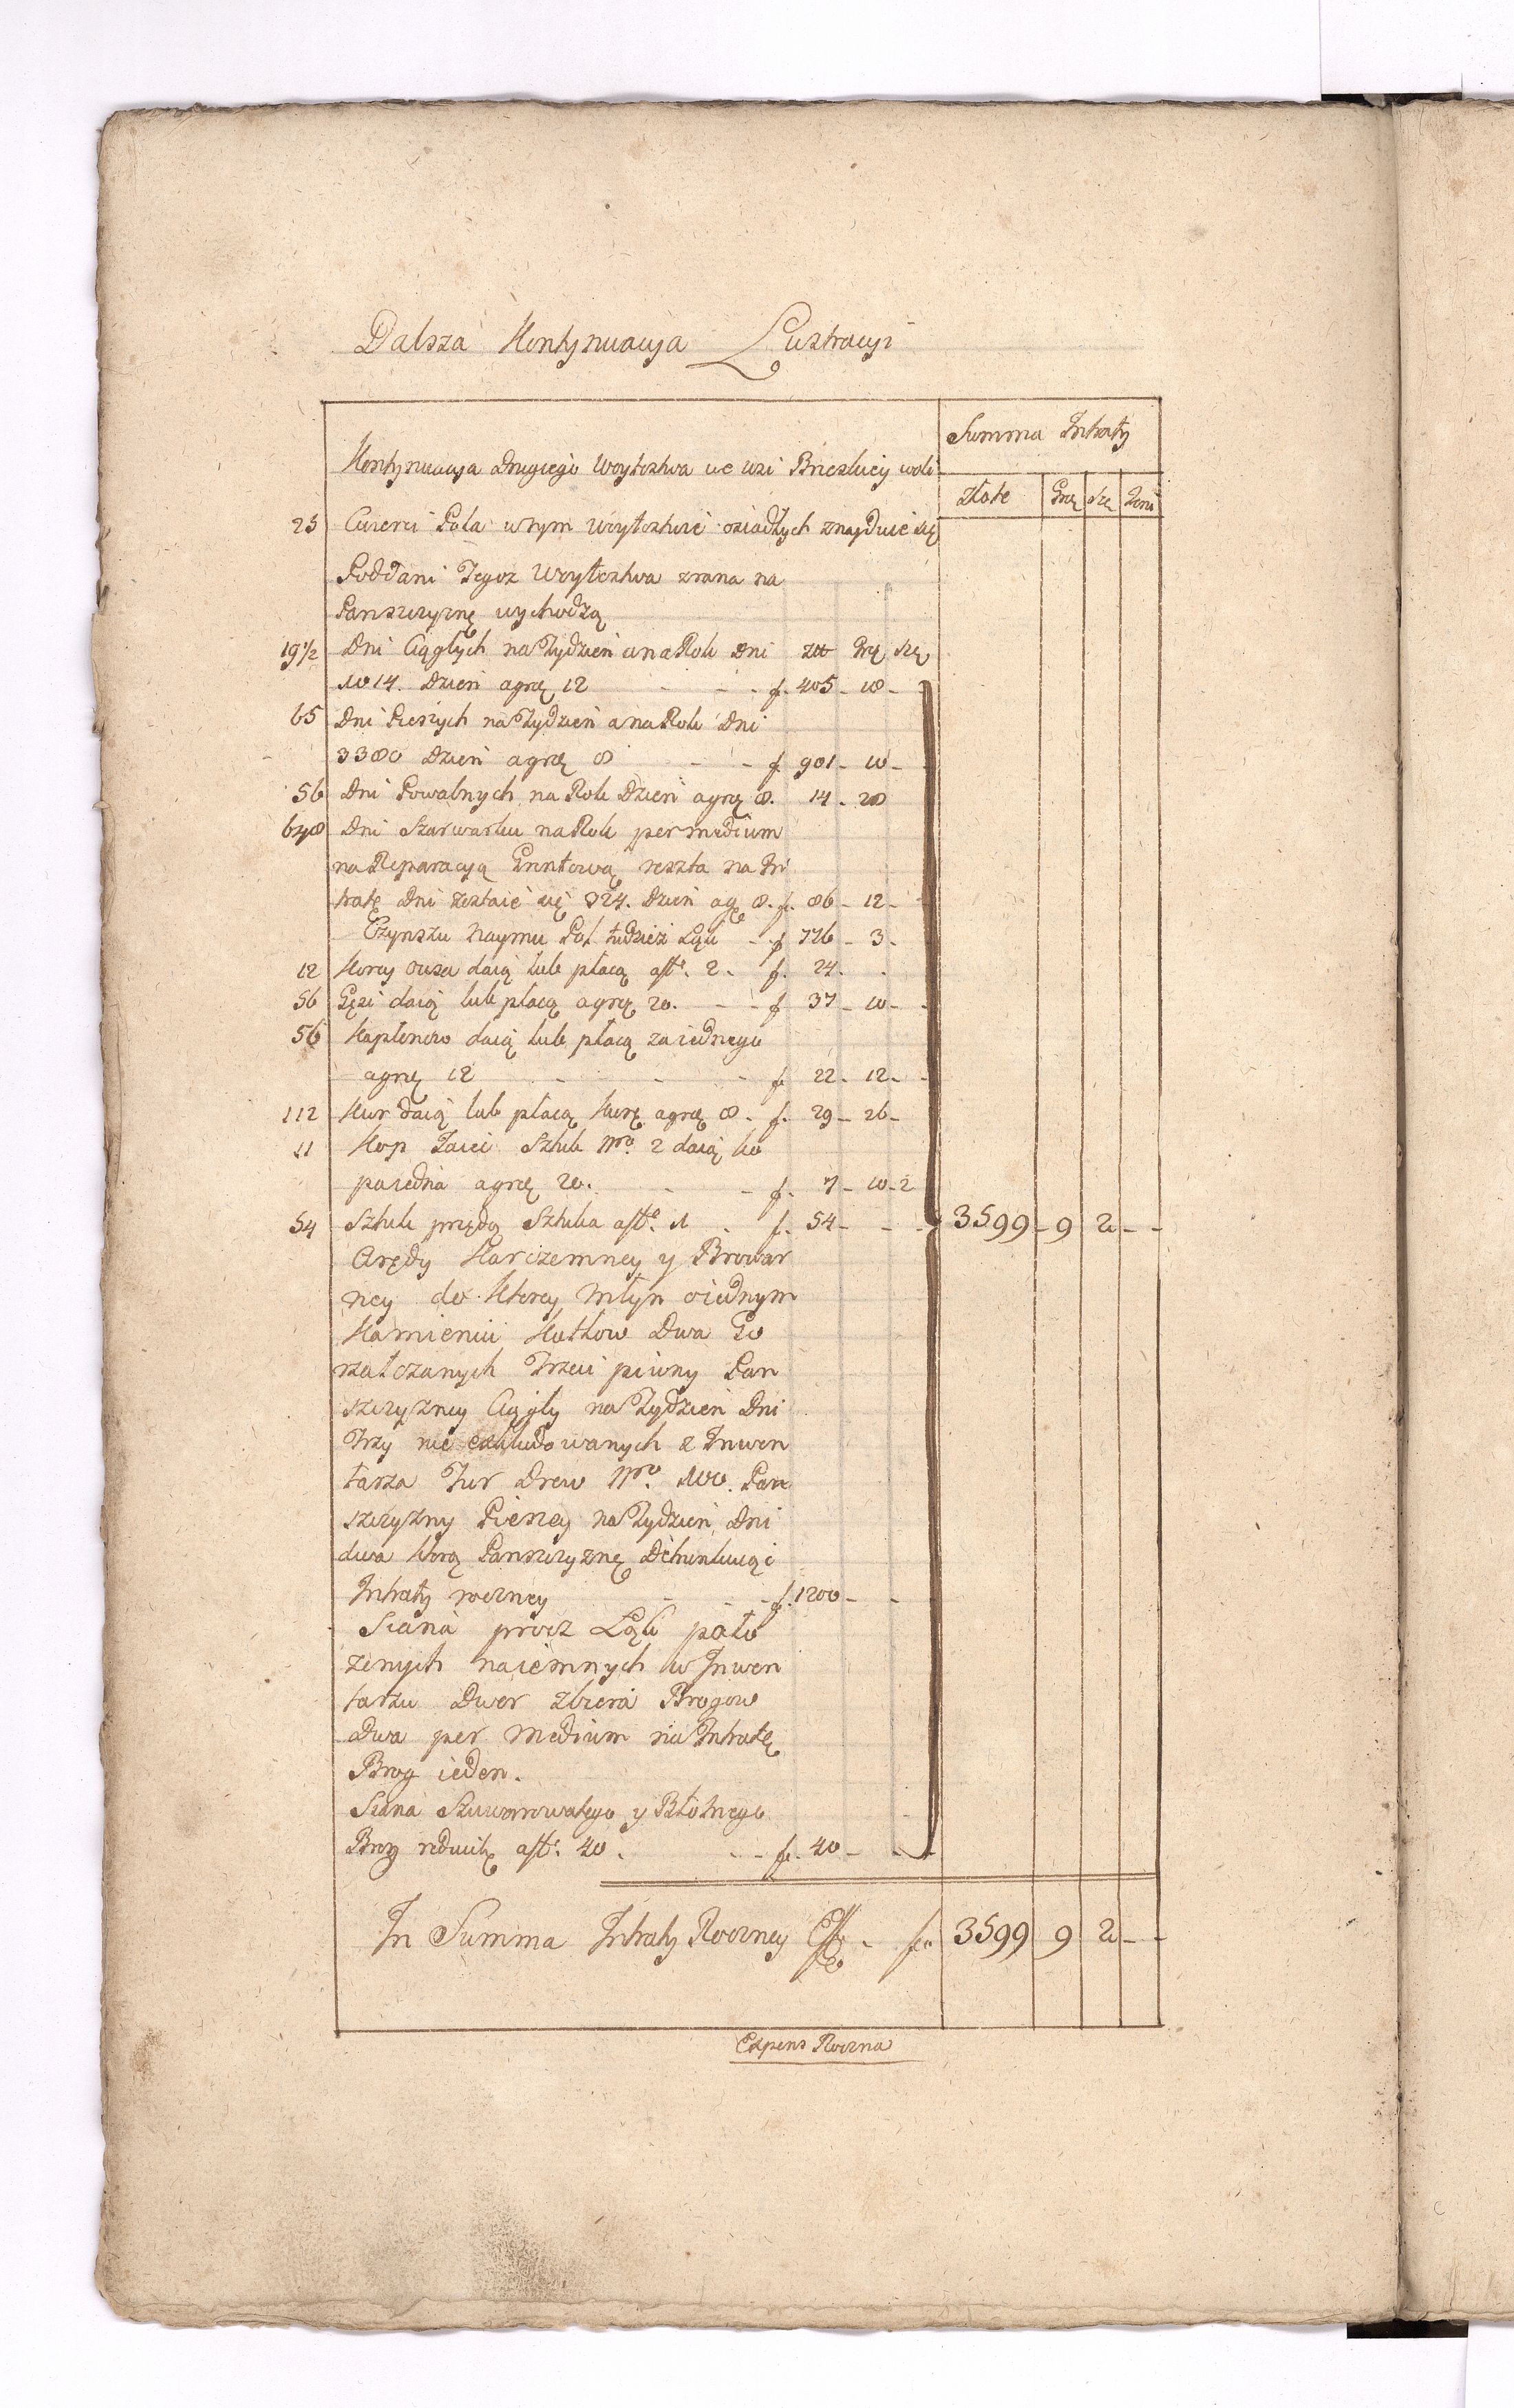 Dalsza Kontynuacya Lustracyi
Summa Intraty
Kontynuacya Drugiego Woytostwa we wsi Brzezkiey woli
Złote Grę Sze Den
25 Cwierci Pola w tym Woytostwie osiadłych znayduie się
Poddani Tegoz Woytostwa zrana na
Panszczyznę wychodzą
19½ Dni Ciągłych na Tydzień a na Rok Dni złt Grę szę
1014. Dzień agrę 12 - - f. 405 - 18 -
65 Dni Pieszych na Tydzień a na Rok Dni
3380 Dzień agrę 8 - - f. 901 - 10 -
56 Dni Powalnych na Rok Dzień agrę 8. 14 - 28
648 Dni Szarwarku na Rok per medium
na Reparacyą Gruntową reszta na In
tratę Dni zostaie się 324. Dzień agę 8. f. 86 - 12 -
Czynszu Naymu Pol tudzież Łąk - f 776 - 3 -
12 Korcy Owsa daią lub płacą aft. 2. f. 24. .
56 Gęsi daią lub płacą agrę 20. - - f 37 - 10 -
56 Kapłonow daią lub płacą za iednego
agrę 12 - - - f 22 - 12 -
112 Kur daią lub płacą Kurę agrę 8. f. 29 - 26 -
11 Kop Jaiec Sztuk Nro. 2 daią ko
pa iedna agrę 20. - - f. 7 - 10 - 2
54 Sztuk przędą Sztuka aft. 1 . f. 54 - - - 3599 - 9 2 - -
Arędy Karczemney y Browar
ney do ktorey Młyn o iednym
Kamieniu Kotłow Dwa Go
rzałczanych Trzeci piwny Pan
szczyzney Ciągły na Tydzień Dni
Trzy nie exkludowanych z Inwen
tarza Fur Drew Nro. 100. Pan
szczyzny Pieszey na Tydzień Dni
dwa ktorą Panszczyznę Detrunkuiąc
Intraty roczney - - f. 1200 - -
Siana procz Łąk poło
zonych naiemnych w Inwen
tarzu Dwor zbiera Brogow
Dwa per medium na Intratę
Brog ieden.
Siana Szuwarowatego y Błotnego
Brog redukt aft. 40 . - - f. 40 - - -
In Summa Intraty Roczney - f. 3599 9 2 - -
Expens Roczna